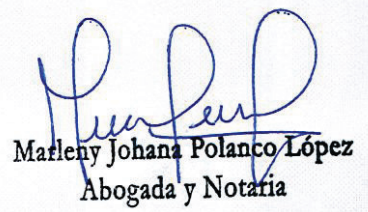 Marleny Johana Polanco López
Abogada y Notaria